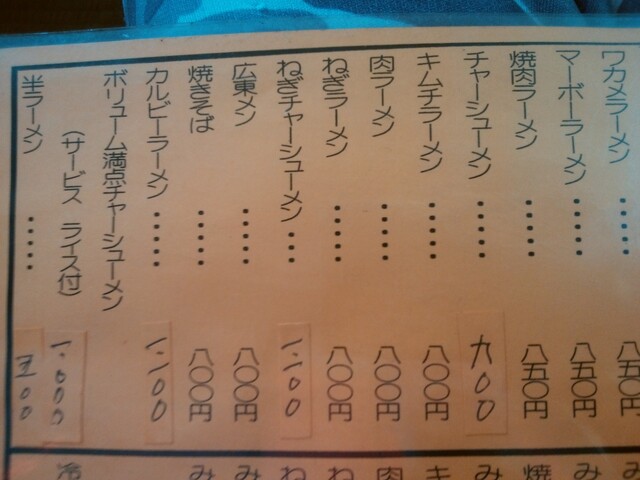 ワカメラーメン・・・・・八五〇円
マーボーラーメン・・・・・八五〇円
焼肉ラーメン・・・・・八五〇円
チャーシューメン・・・・・九00
キムチラーメン・・・・・八〇〇円
肉ラーメン・・・・・八〇〇円
ねぎラーメン・・・・・八〇〇円
ねぎチャーシューメン・・・一、一00
広東メン・・・・・八〇〇円
焼きそば・・・・・八〇〇円
カルビーラーメン・・・・・一、一00
ボリューム満点チャーシューメン
（サービス ライス付）一、000
半ラーメン・・・・・五00